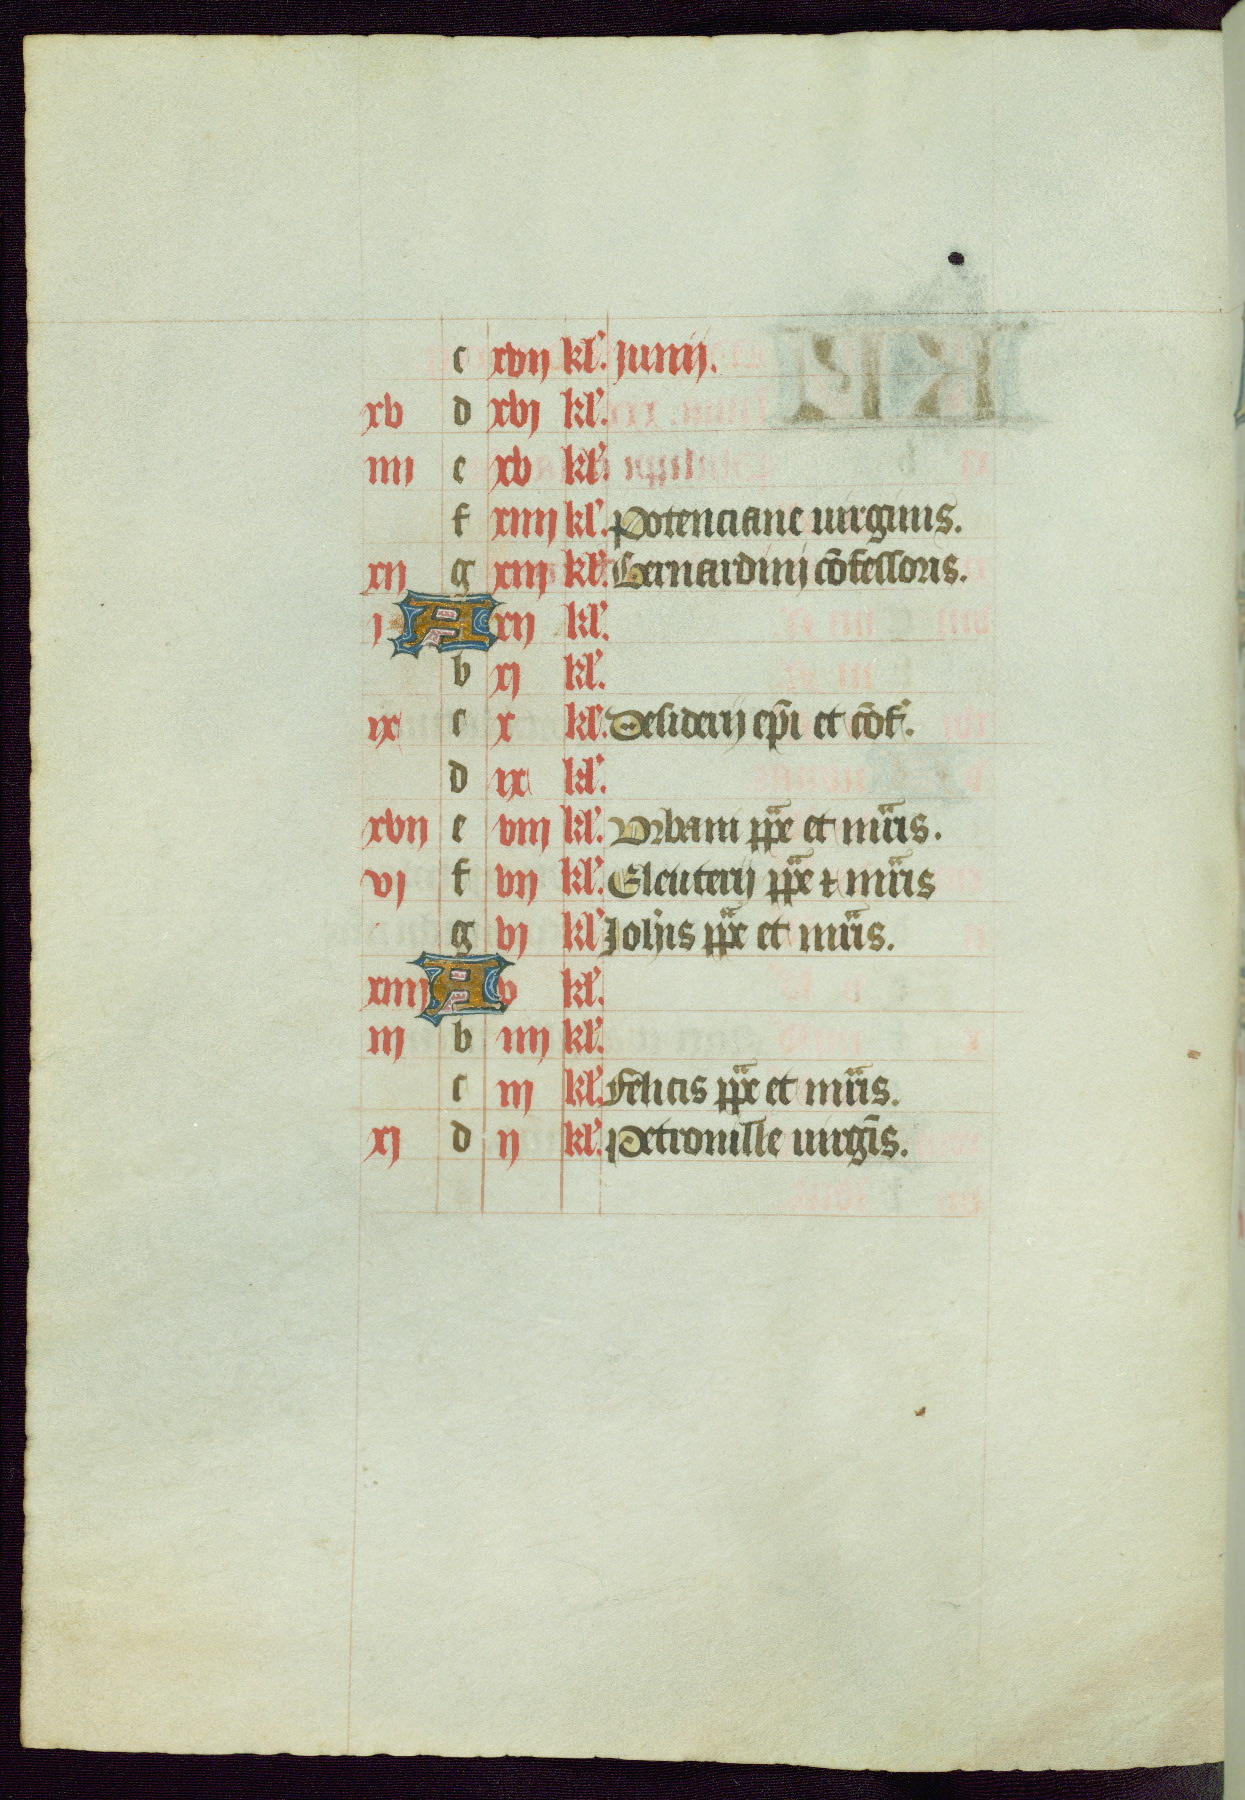 c xvij kl'. Junij.
xv d xvj kl'.
iiij e xv kl'.
f xiiij kl'. Potenciane uirginis.
xij g xiij kl'. Bernardinj cōfessoris.
j A xij kl'.
b xj kl'.
ix c x kl'. Desiderij ep̄i et cōf'.
d ix kl'.
xvij e viij kl'. Vrbani pp̄e et mr̄is.
vj f vij kl'. Eleuterij pp̄e ⁊ mr̄is
g vj kl'. Joh̄is pp̄e et mr̄is.
xiiij A v kl'.
iij b iiij kl'.
c iij kl'. Felicis pp̄e et mr̄is.
xj d ij kl'. Petronille uirgīs.